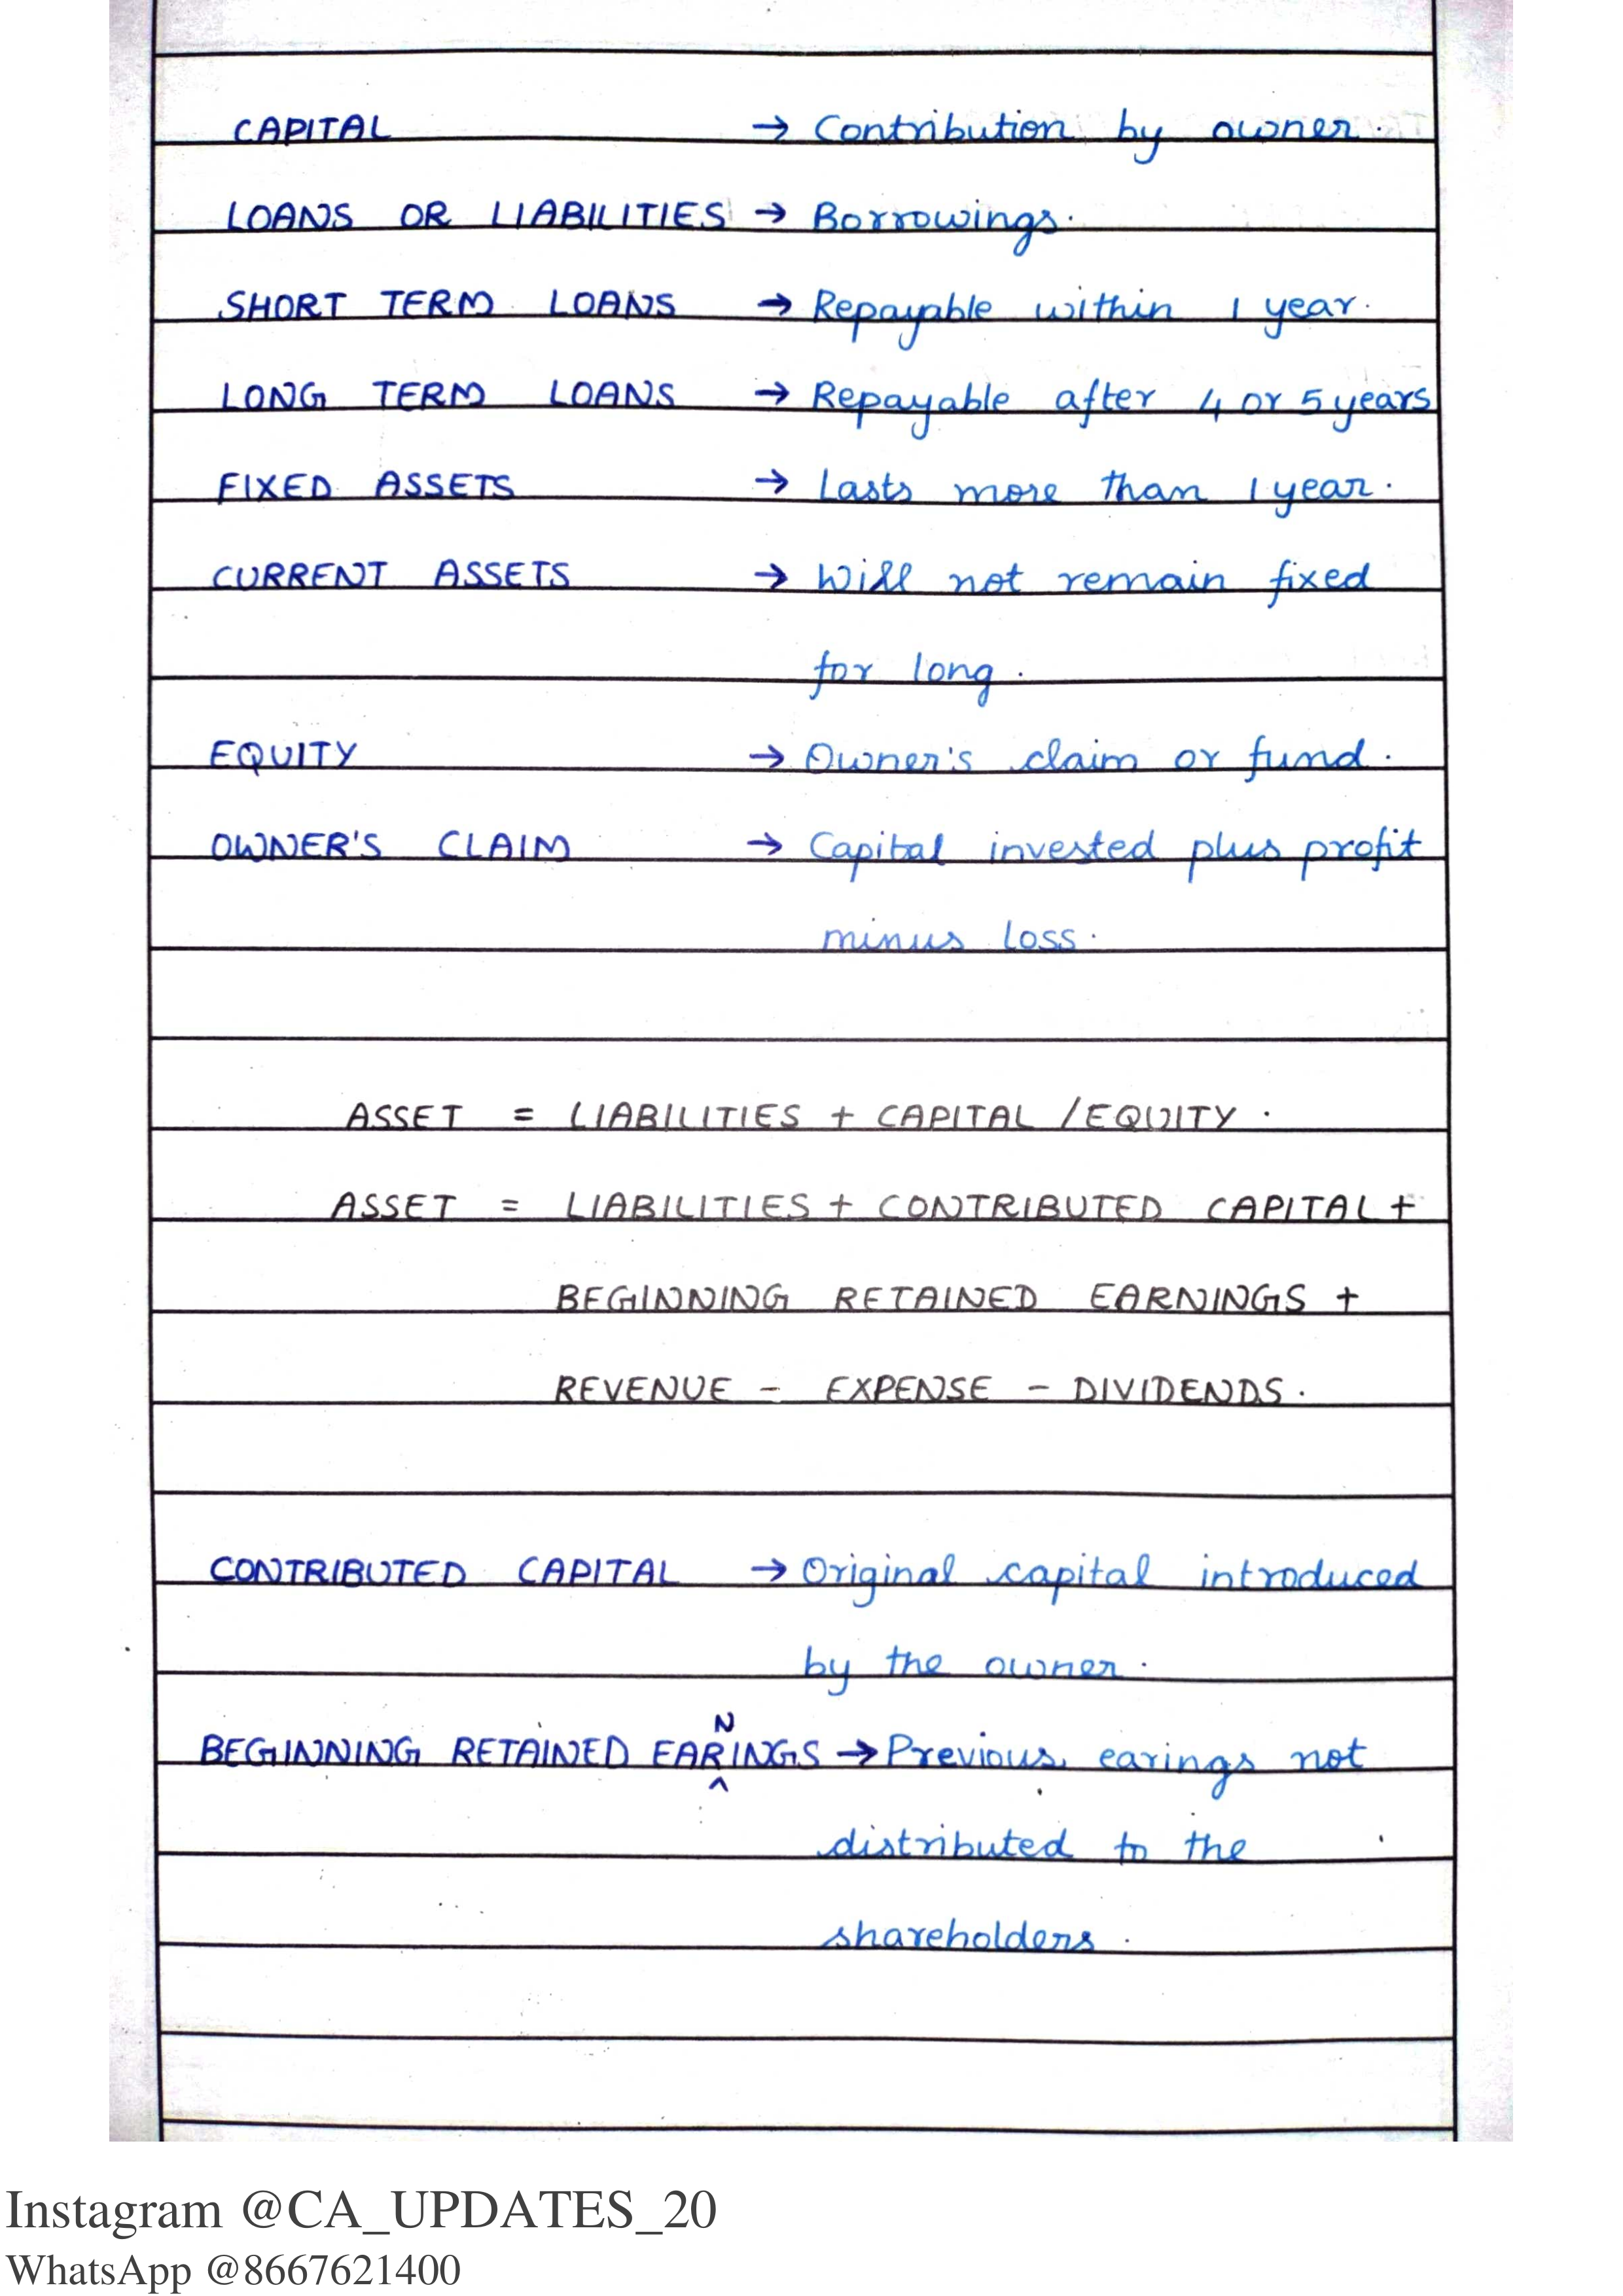 CAPITAL → Contribution by owner.
LOANS OR LIABILITIES → Borrowings.
SHORT TERM LOANS → Repayable within 1 year.
LONG TERM LOANS → Repayable after 4 or 5 years
FIXED ASSETS → Lasts more than 1 year.
CURRENT ASSETS → Will not remain fixed
for long.
EQUITY → Owner's claim or fund.
OWNER'S CLAIM → Capital invested plus profit
minus loss.
ASSET = LIABILITIES + CAPITAL /EQUITY.
ASSET = LIABILITIES + CONTRIBUTED CAPITAL +
BEGINNING RETAINED EARNINGS +
REVENUE - EXPENSE - DIVIDENDS.
CONTRIBUTED CAPITAL → Original capital introduced
by the owner.
BEGINNING RETAINED EARNINGS → Previous earings not
distributed to the
shareholders.
Instagram @CA_UPDATES_20
WhatsApp @8667621400